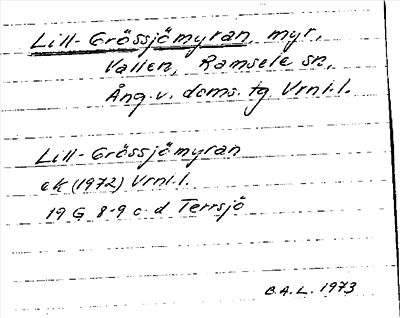 Lill-Grössjömyran, myr,
Vallen, Ramsele sn,
Ång.v. doms. tg Vrnl.l.
Lill-Grössjömyran
ek (1972) Vrnl.l.
19 G 8-9 c-d Terrsjö
B.A.L. 1973